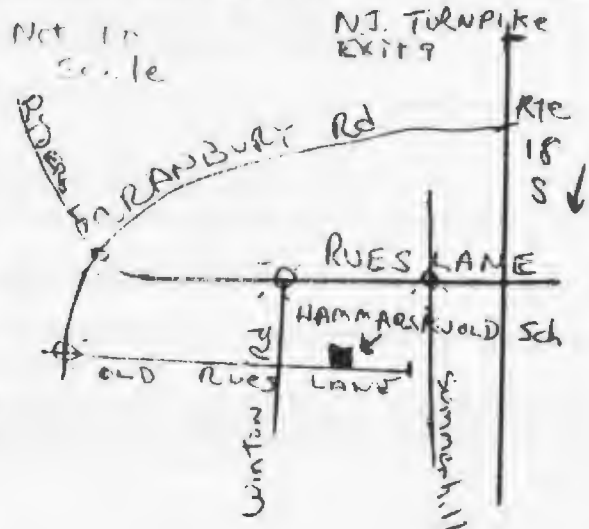 Not to
Scale
N.J. TURNPIKE
EXIT 9
RIDERS
Ln.
CRANBURY Rd
Rte
18
S
RUES LANE
HAMMARSKJOLD Sch
OLD RUES LANE
Winton Rd
Summerhill